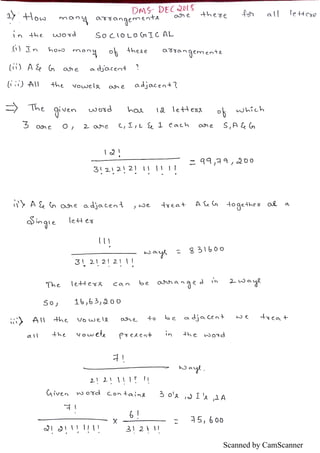 DMS-DEC 2015
1) How many arrangements are there for all letters
in the word SOCIOLOGICAL
(i) In how many of these arrangements
(ii) A & G are adjacent ?
(iii) All the vowels are adjacent?
=> The given word has 12 letters of which
3 are O, 2 are C, I, L & 1 each are S, A & G
12!
3! 2! 2! 2! 1! 1! 1! = 99,79,200
ii) A & G are adjacent, we treat A & G together as a
single letter
11!
3! 2! 2! 2! 1! ways = 831600
The letters can be arranged in 2 ways
So, 16,63,200
iii) All the vowels are to be adjacent we treat
all the vowels present in the word
7!
2! 2! 1! 1! 1! ways.
Given word contains 3 o's, 2 I's, 1A
7!
2! 2! 1! 1! 1! x 6!
3! 2! 1! = 75,600
Scanned by CamScanner